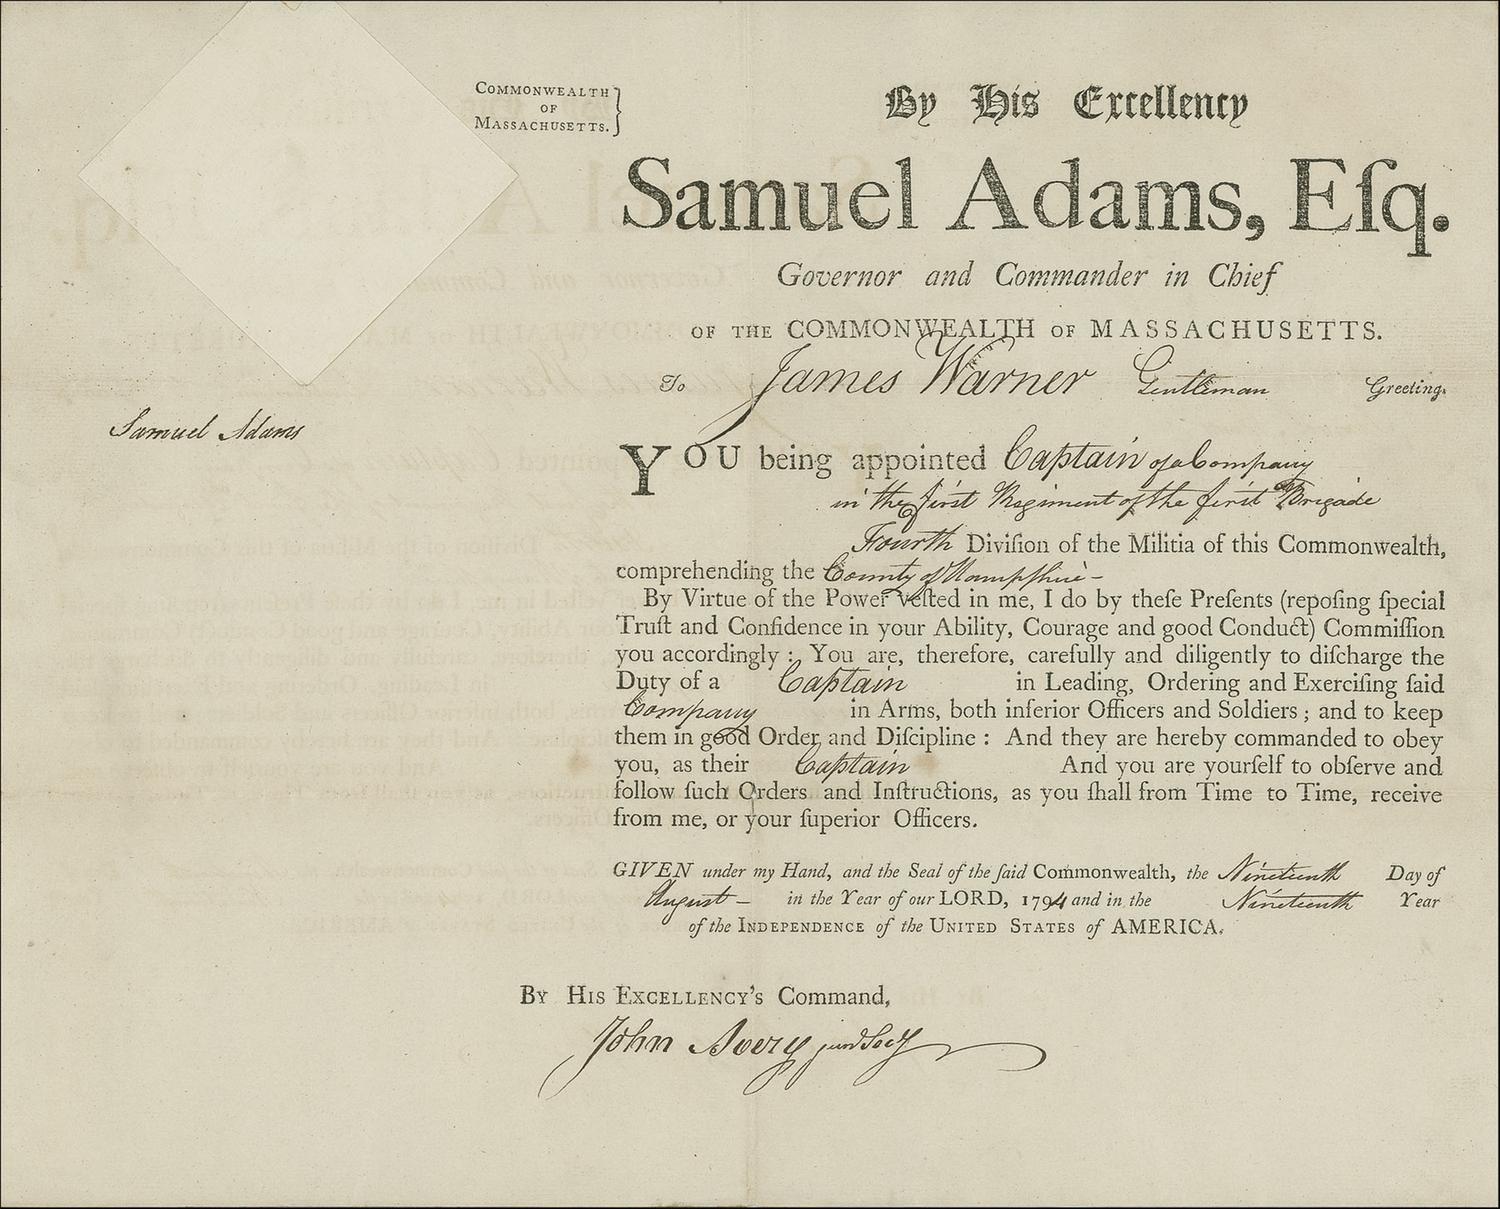 COMMONWEALTH
OF
MASSACHUSETTS.
By His Excellency
Samuel Adams, Eſq.
Governor and Commander in Chief
OF THE COMMONWEALTH OF MASSACHUSETTS.
To James Warner Gentleman Greeting.
Samuel Adams
YOU being appointed Captain of a Company
in the first Regiment of the first Brigade
Fourth Diviſion of the Militia of this Commonwealth,
comprehending the County of Hampshire –
By Virtue of the Power veſted in me, I do by theſe Preſents (repoſing ſpecial
Truſt and Confidence in your Ability, Courage and good Conduct) Commiſſion
you accordingly : You are, therefore, carefully and diligently to diſcharge the
Duty of a Captain in Leading, Ordering and Exerciſing ſaid
Company in Arms, both inferior Officers and Soldiers ; and to keep
them in good Order and Diſcipline : And they are hereby commanded to obey
you, as their Captain And you are yourſelf to obſerve and
follow ſuch Orders and Inſtructions, as you ſhall from Time to Time, receive
from me, or your ſuperior Officers.
GIVEN under my Hand, and the Seal of the ſaid Commonwealth, the Nineteenth Day of
August – in the Year of our LORD, 1794 and in the Nineteenth Year
of the INDEPENDENCE of the UNITED STATES of AMERICA.
BY HIS EXCELLENCY'S Command,
John Avery junr Secy